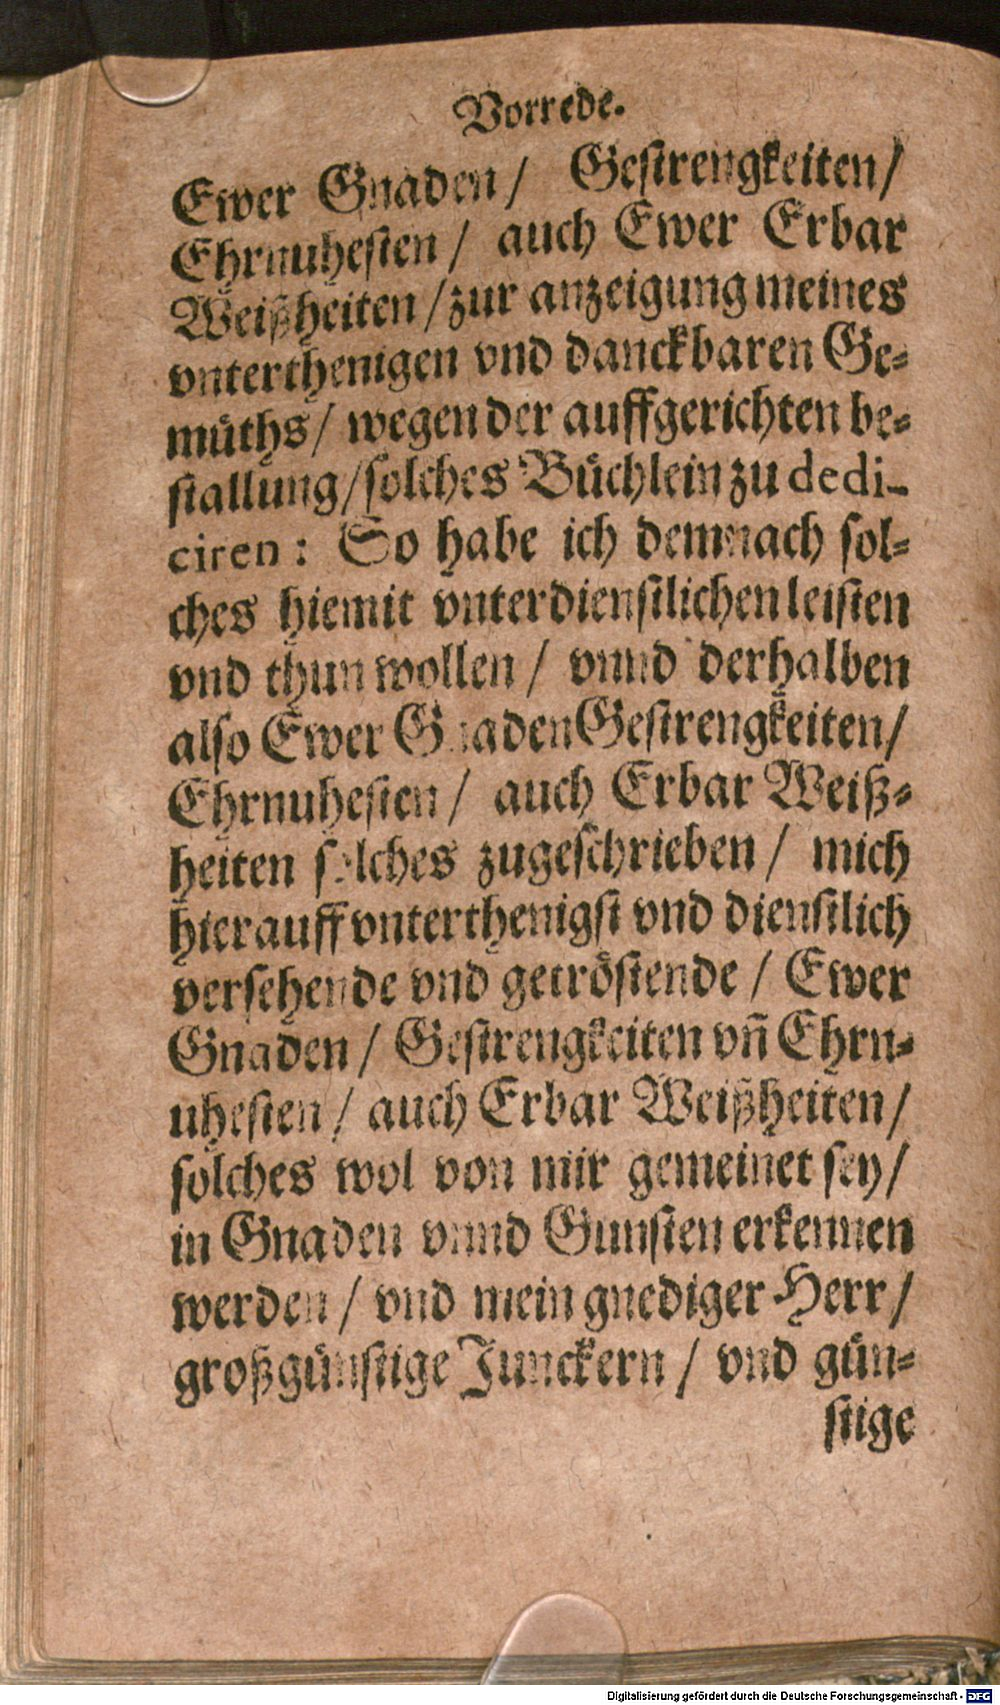 Vorrede.
Ewer Gnaden / Gestrengkeiten/
Ehrnuhesten / auch Ewer Erbar
Weißheiten /zur anzeigung meines
vnterthenigen vnd danckbaren Ge-
muͤths/ wegen der auffgerichten be-
stallung/solches Buͤchlein zu dedi-
ciren : So habe ich demnach sol-
ches hiemit vnterdienstlichen leisten
vnd thun wollen / vnnd derhalben
also Ewer Gnaden Gestrengkeiten/
Ehrnuhesten / auch Erbar Weiß-
heiten solches zugeschrieben / mich
hierauff vnterthenigst vnd dienstlich
versehende vnd getroͤstende / Ewer
Gnaden / Gestrengkeiten vñ Ehrn-
uhesten / auch Erbar Weißheiten /
solches wol von mir gemeinet sey/
in Gnaden vnnd Gunsten erkennen
werden / vnd mein gnediger Herr /
großguͤnstige Junckern / vnd guͤn-
stige
Digitalisierung gefördert durch die Deutsche Forschungsgemeinschaft - DFG